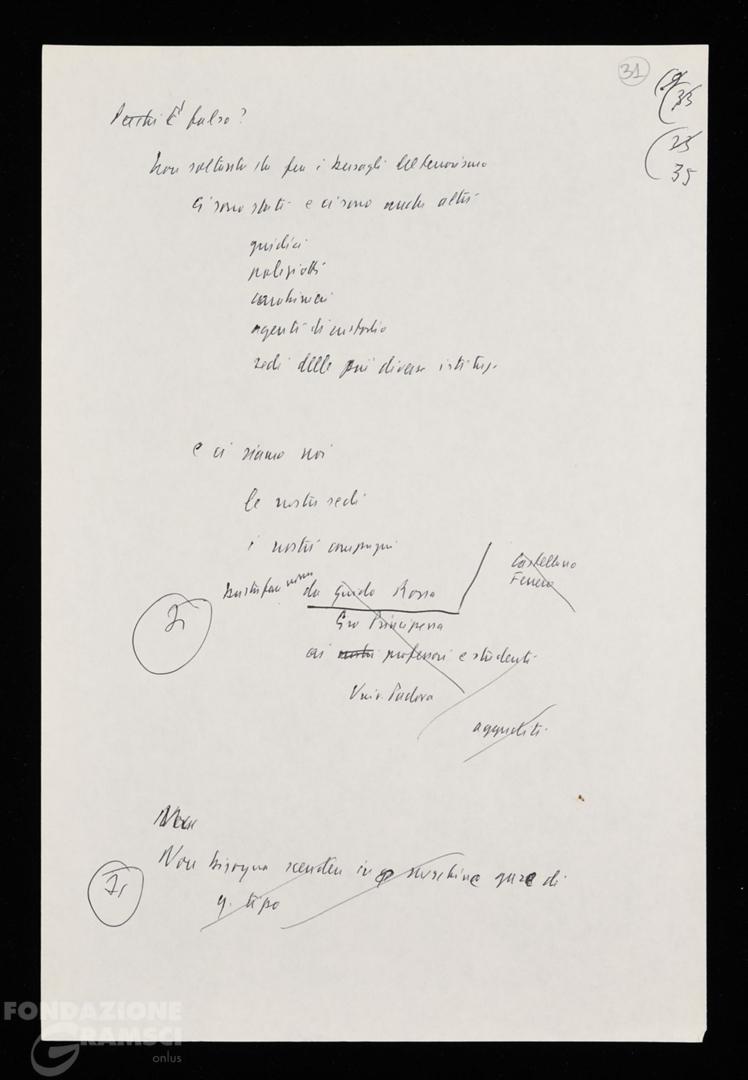 31
33
23
35
Perché È falso?
Non soltanto sta fra i bersagli del terrorismo
ci sono stati e ci sono anche altri
giudici
poliziotti
carabinieri
agenti di custodia
sedi delle più diverse istituz.
e ci siamo noi
le nostre sedi
i nostri compagni
Castellano
Ferrero
da Guido Rossa
Principessa
ai nostri professori e studenti
Univ. Padova
aggrediti
Non
Non bisogna scendere in meschine gare di
q. tipo
FONDAZIONE
GRAMSCI
onlus